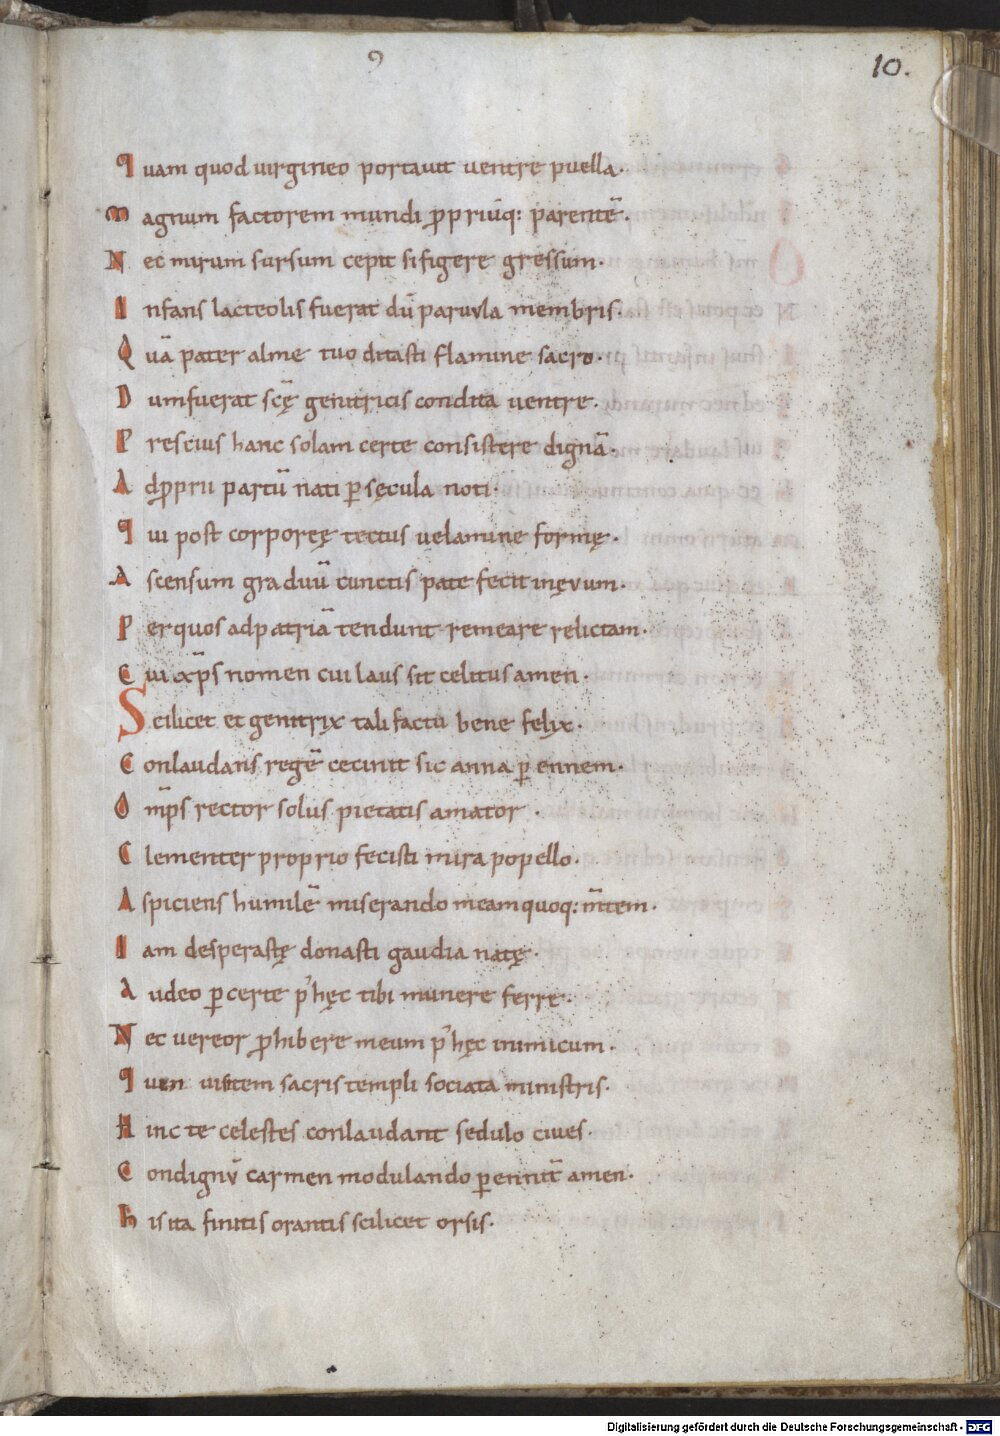 9
10.
Quam quod uirgineo portauit uentre puella.
Magnum factorem mundi ꝓpriūq: parentē.
Nec mirum sursum cepit si figere gressum.
Infans lacteolis fuerat dū paruula membris.
Quā pater alme tuo ditasti flamine sacro.
Dum fuerat scę̄ genitricis condita uentre.
Prescius hanc solam certe consistere dignā.
Adꝓprii partū nati ꝑ sęcula noti.
Qui post corporeę tectus uelamine formę.
Ascensum graduū cunctis patefecit inęvum.
Per quos ad patriā tendunt remeare relictam.
Cui xp̄s nomen cui laus sit celitus amen.
Scilicet et genitrix tali factu bene felix.
Conlaudans regē cecinit sic anna ꝑennem.
Om̄ps rector solus pietatis amator.
Clementer proprio fecisti mira popello.
Aspiciens humilē miserando meam quoq: m̄tem.
Iam desperastę donasti gaudia natę.
Audeo ꝑ certe p' hęc tibi munere ferre.
Nec uereor ꝓhibere meum p' hęc inimicum.
sacris templi sociata ministris.
Hinc te celestes conlaudant sedulo ciues.
Condignv̄ carmen modulando ꝑennit̄ amen.
His ita finitis orantis scilicet orsis.
Digitalisierung gefördert durch die Deutsche Forschungsgemeinschaft - DFG